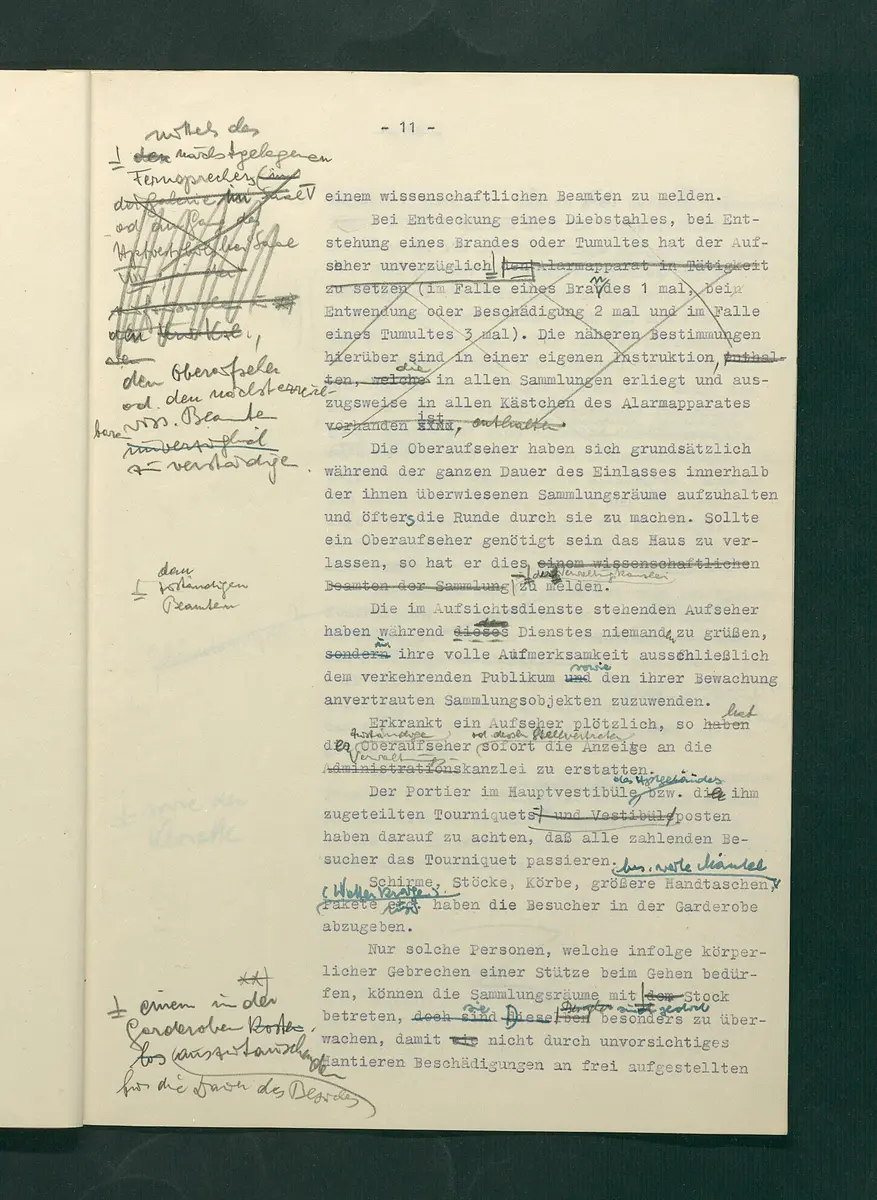 - 11 -
mittels des
den nächstgelegenen
Fernsprechers
einem wissenschaftlichen Beamten zu melden.
Bei Entdeckung eines Diebstahles, bei Ent-
stehung eines Brandes oder Tumultes hat der Auf-
seher unverzüglich den Alarmapparat in Tätigkeit
zu setzen (im Falle eines Brandes 1 mal, beim
Entwendung oder Beschädigung 2 mal und im Falle
eines Tumultes 3 mal). Die näheren Bestimmungen
hierüber sind in einer eigenen Instruktion, enthal-
die
ten, welche in allen Sammlungen erliegt und aus-
zugsweise in allen Kästchen des Alarmapparates
vorhanden ist, enthalten
den Oberaufseher
od. den nächsterreich-
baren wiss. Beamten
unverzüglich
zu verständigen.
Die Oberaufseher haben sich grundsätzlich
während der ganzen Dauer des Einlasses innerhalb
der ihnen überwiesenen Sammlungsräume aufzuhalten
und öfters die Runde durch sie zu machen. Sollte
ein Oberaufseher genötigt sein das Haus zu ver-
lassen, so hat er dies einem wissenschaftlichen
der Verwaltungskanzlei
Beamten der Sammlung zu melden.
dem
zuständigen
Beamten
Die im Aufsichtsdienste stehenden Aufseher
haben während dieses Dienstes niemand zu grüßen,
sondern ihre volle Aufmerksamkeit ausschließlich
sowie
dem verkehrenden Publikum und den ihrer Bewachung
anvertrauten Sammlungsobjekten zuzuwenden.
hat
Erkrankt ein Aufseher plötzlich, so haben
zuständige od. dessen Stellvertreter
der Oberaufseher sofort die Anzeige an die
Verwaltungs-
Administrationskanzlei zu erstatten.
Der Portier im Hauptvestibüle, bzw. die ihm
zugeteilten Tourniquets- und Vestibüleposten
haben darauf zu achten, daß alle zahlenden Be-
sucher das Tourniquet passieren.
Schirme, Stöcke, Körbe, größere Handtaschen,
(Wetterkrägen)
Pakete etc. haben die Besucher in der Garderobe
abzugeben.
Nur solche Personen, welche infolge körper-
licher Gebrechen einer Stütze beim Gehen bedür-
fen, können die Sammlungsräume mit dem Stock
sie
betreten, doch sind Dieselben besonders zu über-
wachen, damit sie nicht durch unvorsichtiges
Hantieren Beschädigungen an frei aufgestellten
einem in der
Garderobe
auszutauschenden
für die Dauer des Besuches